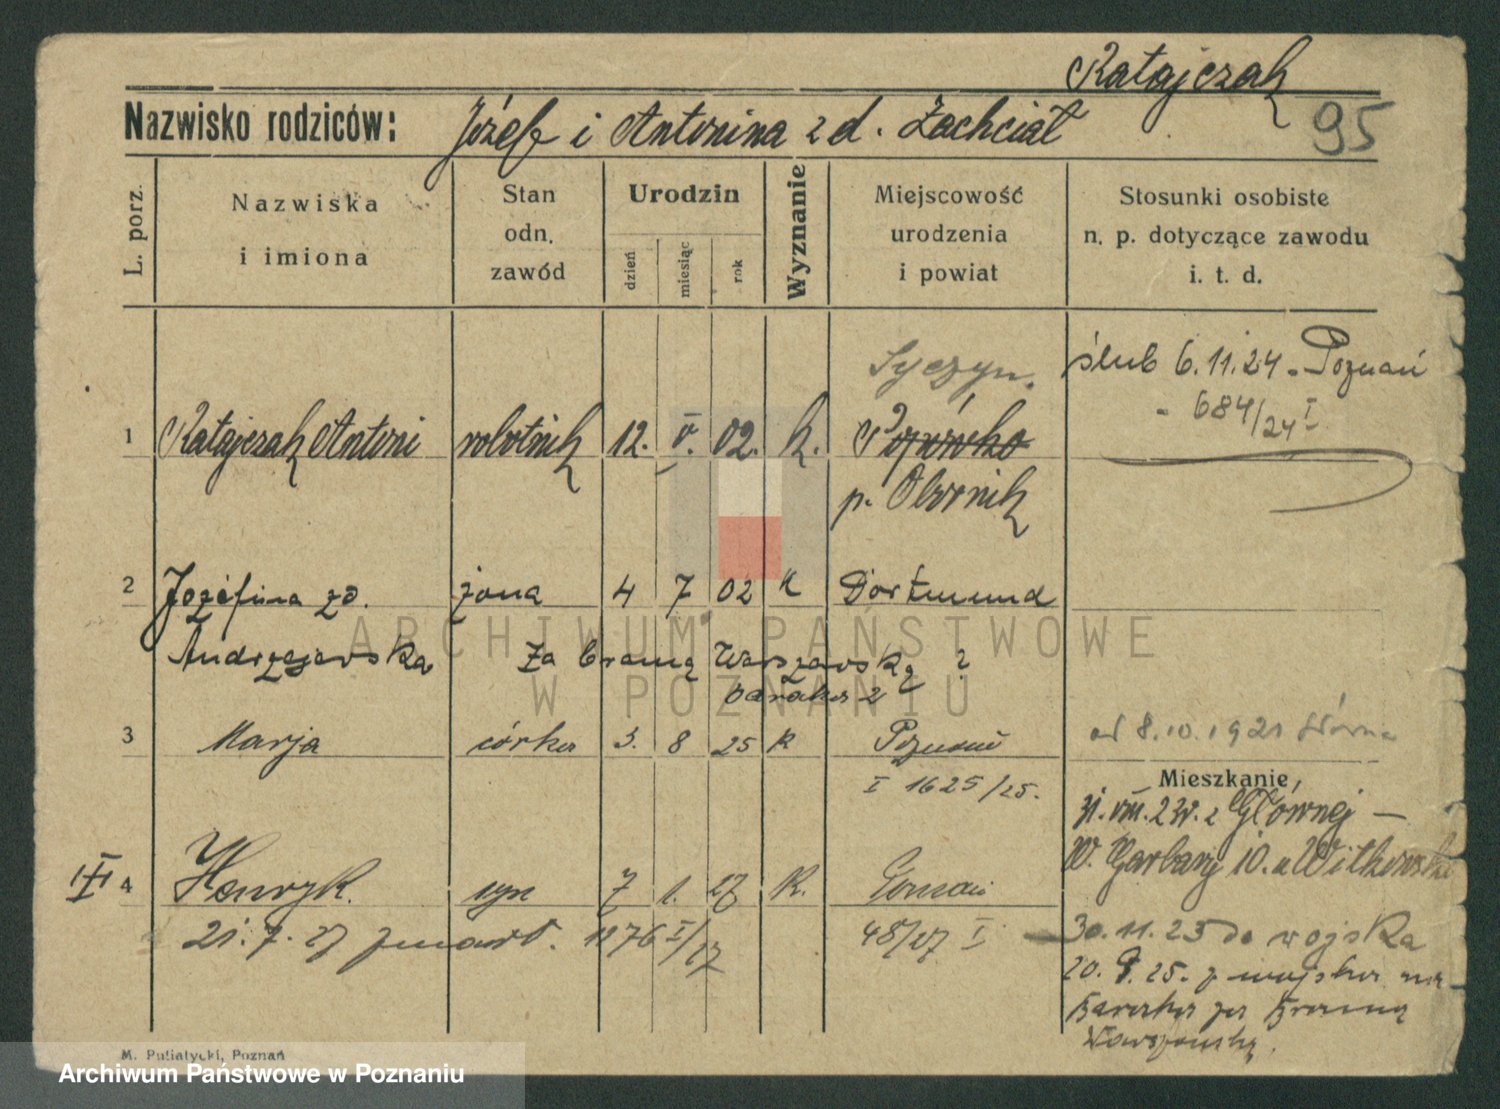 Ratajczak
Nazwisko rodziców: Józef i Antonina z d. Zachciał
95
L. porz.
Nazwiska
i imiona
Stan
odn.
zawód
Urodzin
dzień
miesiąc
rok
Wyznanie
Miejscowość
urodzenia
i powiat
Stosunki osobiste
n. p. dotyczące zawodu
i. t. d.
ślub 6.11.24 - Poznań
- 684/24 I
1 Ratajczak Antoni robotnik 12. V. 02. k.
p. Obornik
2 Józefina zd. żona 4 7 02 k Dortmund
Andrzejewska Za bramą Warszawską 2
baraki 2
3 Marja córka 3. 8 25 k Poznań
I 1625/25.
od 8.10.1921 Główna
Mieszkanie,
31. VIII. 23. z Głównej —
W. Garbary 10. u Witkowski
III 4 Henryk. syn 7 1. 27 k. Poznań
21. 7. 27 zmarł. 1276 I/27
48/27 I
30.11.23 do wojska
20. 9. 25. z wojska na
baraki za bramą
Warszawską.
M. Putiatycki, Poznań
ARCHIWUM PAŃSTWOWE
W POZNANIU
Archiwum Państwowe w Poznaniu